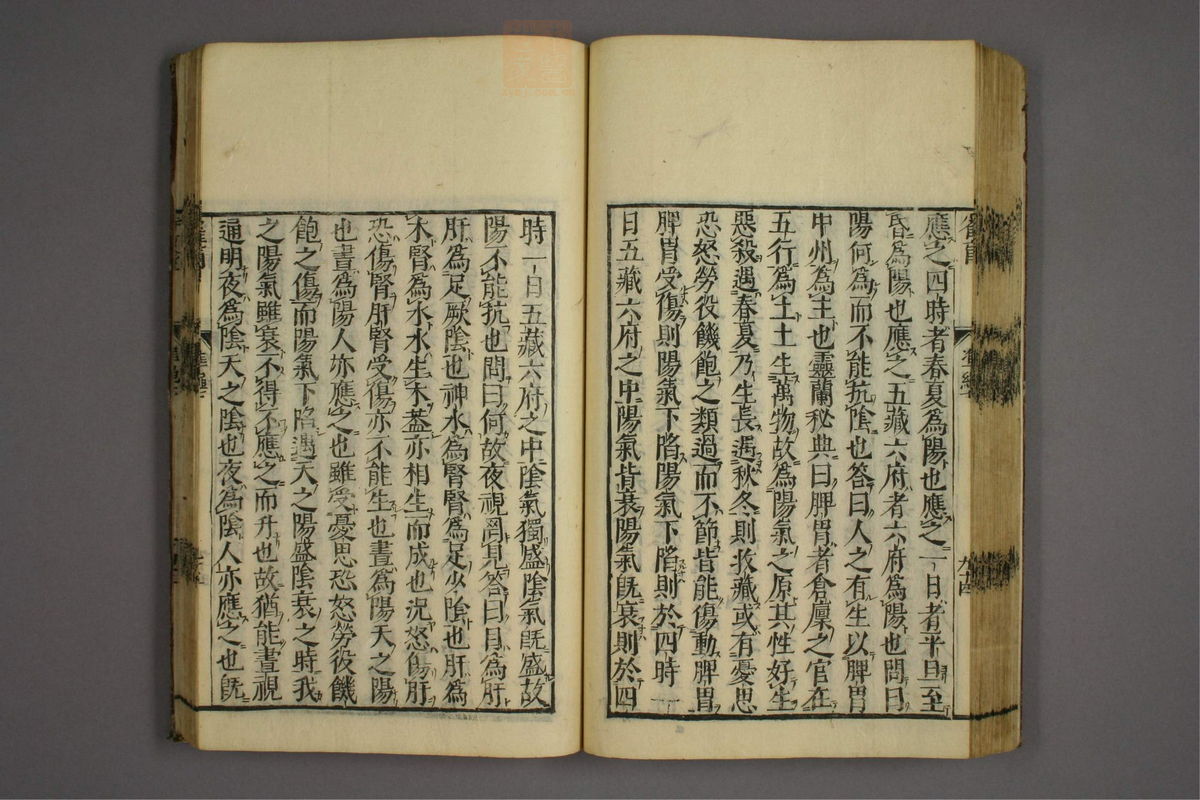 應之四時者春夏為陽也應之一日者平旦至
昏為陽也應之五藏六府者六府為陽也問曰
陽何為而不能抗陰也答曰人之有生以脾胃
中州為主也靈蘭秘典曰脾胃者倉廩之官在
五行為土土生萬物故為陽氣之原其性好生
惡殺遇春夏乃生長遇秋冬則收藏或有憂思
恐怒勞役饑飽之類過而不節皆能傷動脾胃
脾胃受傷則陽氣下陷陽氣下陷則於四時一
日五藏六府之中陽氣皆衰陽氣既衰則於四
時一日五藏六府之中陰氣獨盛陰氣既盛故
陽不能抗也問曰何故夜視罔見答曰目為肝
肝為足厥陰也神水為腎腎為足少陰也肝為
木腎為水水生木蓋亦相生而成也況怒傷肝
恐傷腎肝腎受傷亦不能生也晝為陽天之陽
也晝為陽人亦應之也雖受憂思恐怒勞役饑
飽之傷而陽氣下陷遇天之陽盛陰衰之時我
之陽氣雖衰不得不應之而升也故猶能晝視
通明夜為陰天之陰也夜為陰人亦應之也既